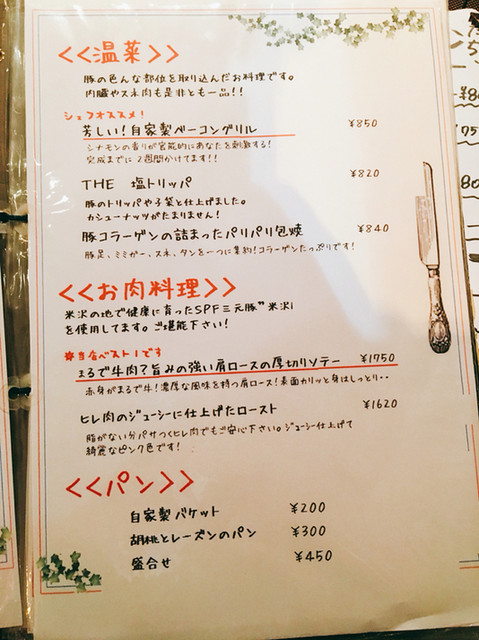 <<温菜>>
豚の色んな部位を取り込んだお料理です。
内臓やスネ肉も是非とも一品!!
シェフオススメ!
芳しい!自家製ベーコングリル ¥850
シナモンの香りが官能的にあなたを刺激する!
完成までに2週間かけてます!!
THE 塩トリッパ ¥820
豚のトリッパや子袋と仕上げました。
カシューナッツがたまりません!
豚コラーゲンの詰まったパリパリ包焼 ¥840
豚足、ミミガー、スネ、タンを一つに集約!コラーゲンたっぷりです!
<<お肉料理>>
米沢の地で健康に育ったSPF三元豚"米沢i
を使用してます。ご堪能下さい!
*当店ベスト1です
まるで牛肉?旨みの強い肩ロースの厚切りソテー ¥1750
赤身がまるで牛!濃厚な風味を持つ肩ロース!表面カリッと身はしっとり・・
ヒレ肉のジューシーに仕上げたロースト ¥1620
脂がない分パサつくヒレ肉でもご安心下さい。ジューシー仕上げて
綺麗なピンク色です!
<<パン>>
自家製バケット ¥200
胡桃とレーズンのパン ¥300
盛合せ ¥450